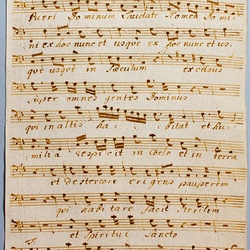 Pueri Dominum Laudate Nomen Domi:
ni ex hoc nunc et usque ex hoc nunc et us:
que usque in Saeculum excelsus
super omnes gentes Dominus
qui in altis ha: bitat et hu:
milia respicit in coelo et in terra
et de stercore erigens pauperem
qui habitare facit sterilem
et Spiritui Sancto